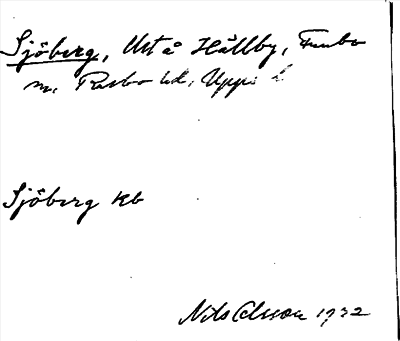 Sjöberg, Ust å Hållby, Funbo
sn, Rasbo hd, Upps l
Sjöberg Kb
Nils Carlsson 1932